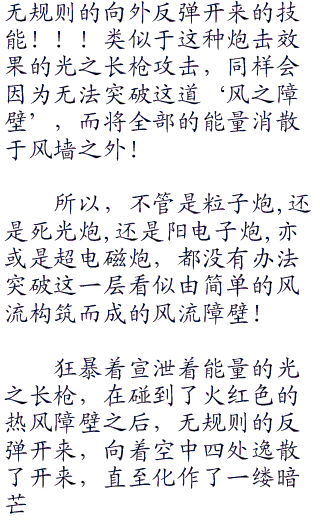 无规则的向外反弹开来的技
能！！！类似于这种炮击效
果的光之长枪攻击，同样会
因为无法突破这道‘风之障
壁’，而将全部的能量消散
于风墙之外！
所以，不管是粒子炮,还
是死光炮,还是阳电子炮,亦
或是超电磁炮，都没有办法
突破这一层看似由简单的风
流构筑而成的风流障壁！
狂暴着宣泄着能量的光
之长枪，在碰到了火红色的
热风障壁之后，无规则的反
弹开来，向着空中四处逸散
了开来，直至化作了一缕暗
芒